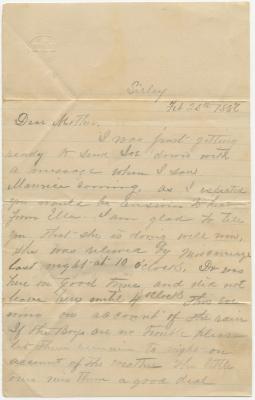 Sirley
Feb 20th 188
Dear Mother.
I was just getting
ready to send Joe down with
a message when I saw
Maurice coming, as I expected
you would be anxious to hear
from Ella. I am glad to tell
you that she is doing well now,
She was relieved by miscarriage
last night at 10 o'clock. Dr was
here in good time and did not
leave here until o'clock this
ning on account of the rain
If the Boys are no trouble please
let them remain to night on
account of the weather the little
ones miss them a good deal